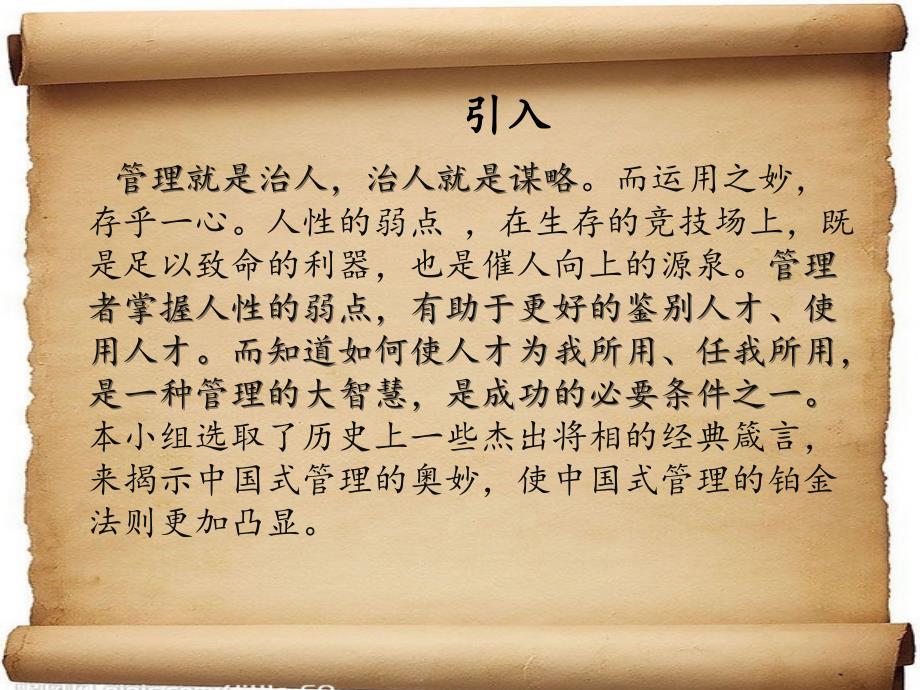 引入
管理就是治人，治人就是谋略。而运用之妙，
存乎一心。人性的弱点 ，在生存的竞技场上，既
是足以致命的利器，也是催人向上的源泉。管理
者掌握人性的弱点，有助于更好的鉴别人才、使
用人才。而知道如何使人才为我所用、任我所用，
是一种管理的大智慧，是成功的必要条件之一。
本小组选取了历史上一些杰出将相的经典箴言，
来揭示中国式管理的奥妙，使中国式管理的铂金
法则更加凸显。